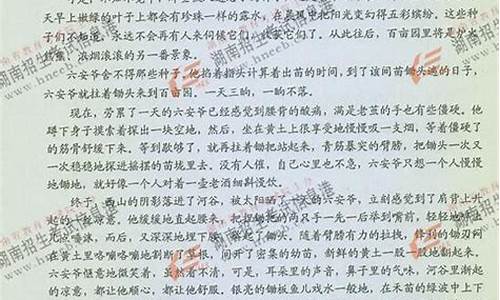 天早上嫩绿的叶子上都会有珍珠一样的露水，在晨风中把阳光变幻得五彩缤纷。这些种
子们不知道，永远不会再有人来伺候它们，收获它们了。从此往后，百亩园里将是炉火
浓烟滚滚的另一番景象。
六安爷舍不得那些种子。他掐着指头计算着出苗的时间，到了该间苗锄头遍的日子，
六安爷就拄着锄头来到百亩园。一天三晌，一晌不落。
现在，劳累了一天的六安爷已经感觉到腰背的酸痛，满是老茧的手也有些僵硬。他
蹲下身子摸索着探出一块空地，然后，坐在黄土上很享受地慢慢吸一支烟，等着僵硬了
的筋骨舒缓下来。等到歇够了，就再拄着锄把站起来，青筋暴突的臂膀，把锄头一次又
一次稳稳地探进摇摆的苗垅里去。没有人催，自己心里也不急，六安爷只想一个人慢慢
地锄地，就好像一个人对着一壶老酒细斟慢饮。
终于，西山的阴影落进了河谷，被太阳晒了一天的六安爷，立刻感觉到了肩背上升
起的一丝凉意。他缓缓地直起腰来，把捏锄把的两只手一先一后举到嘴前，轻轻地啐上
几点唾沫，而后，又深深地埋下腰，举起了锄头。随着臂膀有力的拉拽，锋利的锄刃闷
在黄土里咯嘣咯嘣地割断了草根，间开了密集的幼苗，新鲜的黄土一股一股地翻起来。
六安爷惬意地微笑着，虽然看不清，可是，耳朵里的声音，鼻子里的气味，河谷里渐起
的凉意，都让他顺心，都让他舒服。银亮的锄板鱼儿戏水一般地，在禾苗的绿波中上下